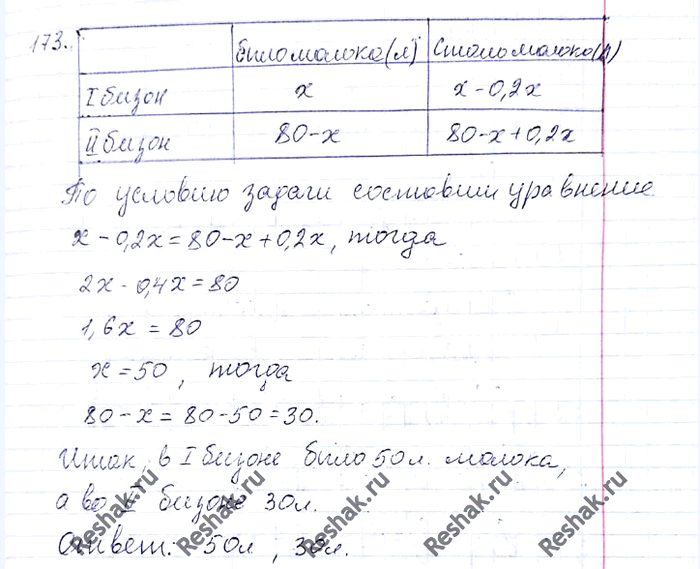 173. Было молока (л) Стало молока (л)
I бизон x x - 0,2x
II бизон 80-x 80-x+0,2x
По условию задачи составим уравнение
x - 0,2x = 80-x+0,2x, тогда
2x - 0,4x = 80
1,6x = 80
x = 50, тогда
80 - x = 80 - 50 = 30.
Итак, в I бизоне было 50 л. молока,
а во II бизоне 30 л.
Ответ: 50л, 30л.
Reshak.ru Reshak.ru Reshak.ru Reshak.ru